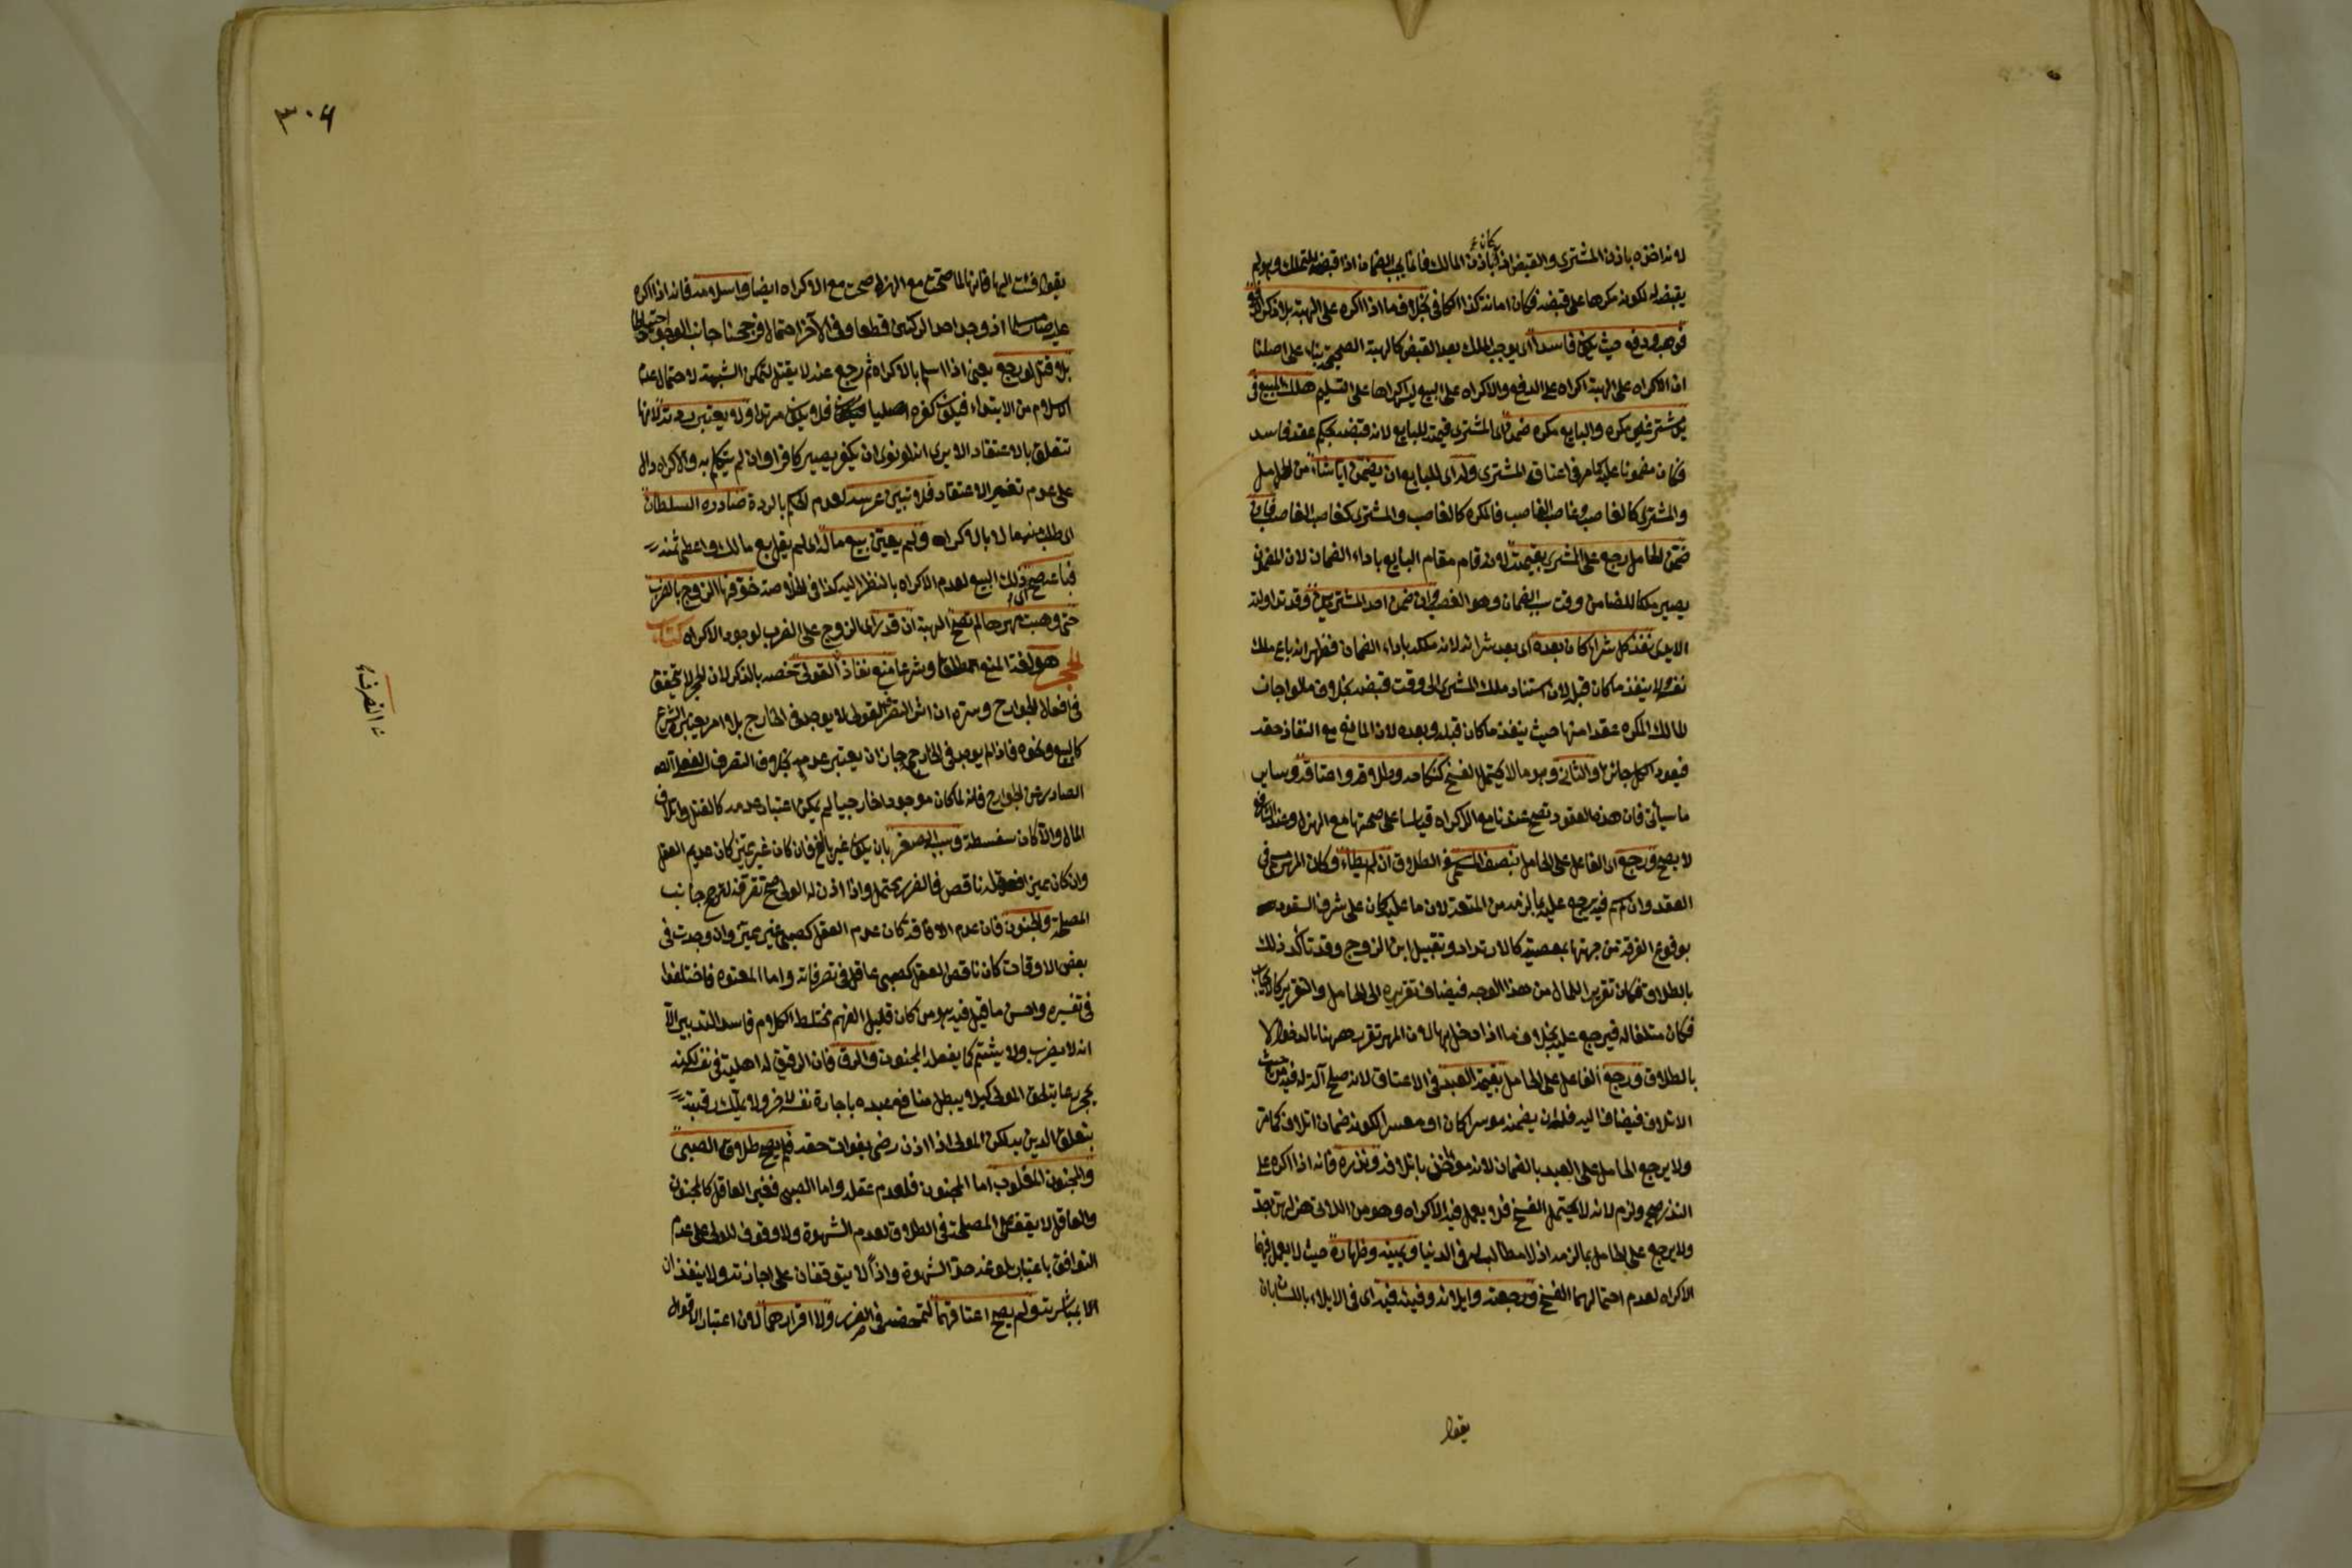 لانه اخذه باذن المشتري والقبض اذا كان باذن المالك فانما يجب الضمان اذا قبضه للتملك وهو لم
يقبضه له لكونه مكرها على قبضه فكان امانة كذا في الكافي بخلاف ما اذا اكره على الهبة بلا ذكر الدفع
فوهب ودفع حيث يكون فاسدا اي يوجب الملك بعد القبض كالهبة الصحيحة بناء على اصلنا
ان الاكراه على الهبة اكراه على الدفع والاكراه على البيع ليس اكراها على التسليم هلك المبيع في
يد مشتر غير مكره والبايع مكره ضمن اي المشتري قيمته للبايع لانه قبضه بحكم عقد فاسد
فكان مضمونا عليه كما مر في اعتاق المشتري وله اي للبايع ان يضمن ايا شاء من الحامل
والمشتري كالغاصب وغاصب الغاصب فالمكره كالغاصب والمشتري كغاصب الغاصب فان
ضمن الحامل رجع على المشتري بقيمته لانه قام مقام البايع باداء الضمان لان المضمون
يصير ملكا للضامن وقت سبب الضمان وهو الغصب وان ضمن احد المشتريين وقد تداولته
الايدي نفذ كل شراء كان بعده اي بعد شرائه لانه ملكه باداء الضمان فظهر انه باع ملك
نفسه ولا ينفذ ما كان قبله لان استناد ملك المشتري الى وقت قبضه بخلاف ما لو اجاز
المالك المكره عقدا منها حيث ينفذ ما كان قبله وبعده لان المانع من النفاذ حقه
فيعود الكل جائزا والثاني وهو ما لا يحتمل الفسخ كنكاحه وطلاقه واعتاقه وساير
ما سيأتي فان هذه العقود تصح عندنا مع الاكراه قياسا على صحتها مع الهزل وعند الشافعي
لا يصح ورجع اي الفاعل على الحامل بنصف المسمى في الطلاق ان لم يطأ وكان المهر مسمى في
العقد وان لم يسم فيه يرجع عليه بما لزمه من المتعة لان ما عليه كان على شرف السقوط
بوقوع الفرقة من جهتها بمعصية كالارتداد وتقبيل ابن الزوج وقد تأكد ذلك
بالطلاق فكان تقريرا للمال من هذا الوجه فيضاف تقريره الى الحامل والتقرير كالايجاب
فكان متلفا له فيرجع عليه بخلاف ما اذا دخل بها لان المهر تقرر ههنا بالدخول لا
بالطلاق ورجع الفاعل على الحامل بقيمة العبد في الاعتاق لانه صلح آلة له فيه من حيث
الاتلاف فيضاف اليه فله ان يضمنه موسرا كان او معسرا لكونه ضمان اتلاف كما مر
ولا يرجع الحامل على العبد بالضمان لانه مؤاخذ باتلافه ونذره فانه اذا اكره على
النذر صح ولزم لانه لا يحتمل الفسخ فلا يعمل فيه الاكراه وهو من اللاتي هزلهن جد
ولا يرجع على الحامل بما لزمه اذ لا مطالب له في الدنيا ويمينه وظهاره حيث لا يعمل فيهما
الاكراه لعدم احتمالهما الفسخ ورجعته وايلائه وفيئه فيه اي في الايلاء باللسان بان
يقول
٣٠٦
يقول فئت اليها فانها لما صحت مع الهزل صحت مع الاكراه ايضا واسلامه فانه اذا اكره
عليه صار مسلما اذ وجد احد الركنين قطعا وفي الآخر احتمال فرجحنا جانب الوجود احتياطا
بلا قتل لو رجع يعني اذا اسلم بالاكراه ثم رجع عنه لا يقتل لتمكن الشبهة لاحتمال عدم
الاسلام من الابتداء فيكون كفره اصليا فلا يكون مرتدا ولا يعتبر ردته لانها
تتعلق بالاعتقاد الا يرى انه لو نوى ان يكفر يصير كافرا وان لم يتكلم به والاكراه دال
على عدم تغير الاعتقاد فلا تبين عرسه لعدم الحكم بالردة صادره السلطان
اي طلب منه مالا بالاكراه ولم يعين بيع ماله اي لم يقل بع مالك واعطني ثمنه
فباعه صح ذلك البيع لعدم الاكراه بالنظر اليه كذا في الخلاصة خوفها الزوج بالضرب
حتى وهبت مهرها لم تصح اي الهبة ان قدر اي الزوج على الضرب لوجود الاكراه كتاب
الحجر هو لغة المنع مطلقا وشرعا منع نفاذ القولي خصه بالذكر لان الحجر لا يتحقق
في افعال الجوارح وسره ان اثر التصرف القولي لا يوجد في الخارج بل امر يعتبره الشرع
كالبيع ونحوه فاذا لم يوجد في الخارج جاز ان يعتبر عدمه بخلاف التصرف الفعلي
الصادر عن الجوارح فانه لما كان موجودا خارجيا لم يمكن اعتبار عدمه كالقتل واتلاف
المال والا كان سفسطة وسببه الصغر بان يكون غير بالغ فان كان غير مميز كان عديم العقل
وان كان مميزا فعقله ناقص فالضرر يحتمل واذا اذن له الولي صح تصرفه لترجح جانب
المصلحة والجنون فان عدم الافاقة كان عدم العقل كصبي غير مميز وان وجدت في
بعض الاوقات كان ناقص العقل كصبي عاقل في تصرفاته واما المعتوه فاختلفوا
في تفسيره واحسن ما قيل فيه هو من كان قليل الفهم مختلط الكلام فاسد التدبير الا
انه لا يضرب ولا يشتم كما يفعل المجنون والرق فان الرقيق له اهلية في نفسه لكنه
يحجر رعاية لحق المولى كيلا يبطل منافع عبده باجارة نفسه لآخر ولا يملك رقبته
بتعلق الدين به لكن المولى اذا اذن رضي بفوات حقه فلم يصح طلاق الصبي
والمجنون المغلوب اما المجنون فلعدم عقله واما الصبي فغير العاقل كالمجنون
والعاقل لا يقف على المصلحة في الطلاق لعدم الشهوة ولا وقوف للولي على عدم
التوافق باعتبار بلوغه حد الشهوة ولذا لا يتوقفان على اجازته ولا ينفذان
الا بمباشرته ولم يصح اعتاقهما لتمحضه في الضرر ولا اقرارهما لان اعتبار الاقوال
التصرف